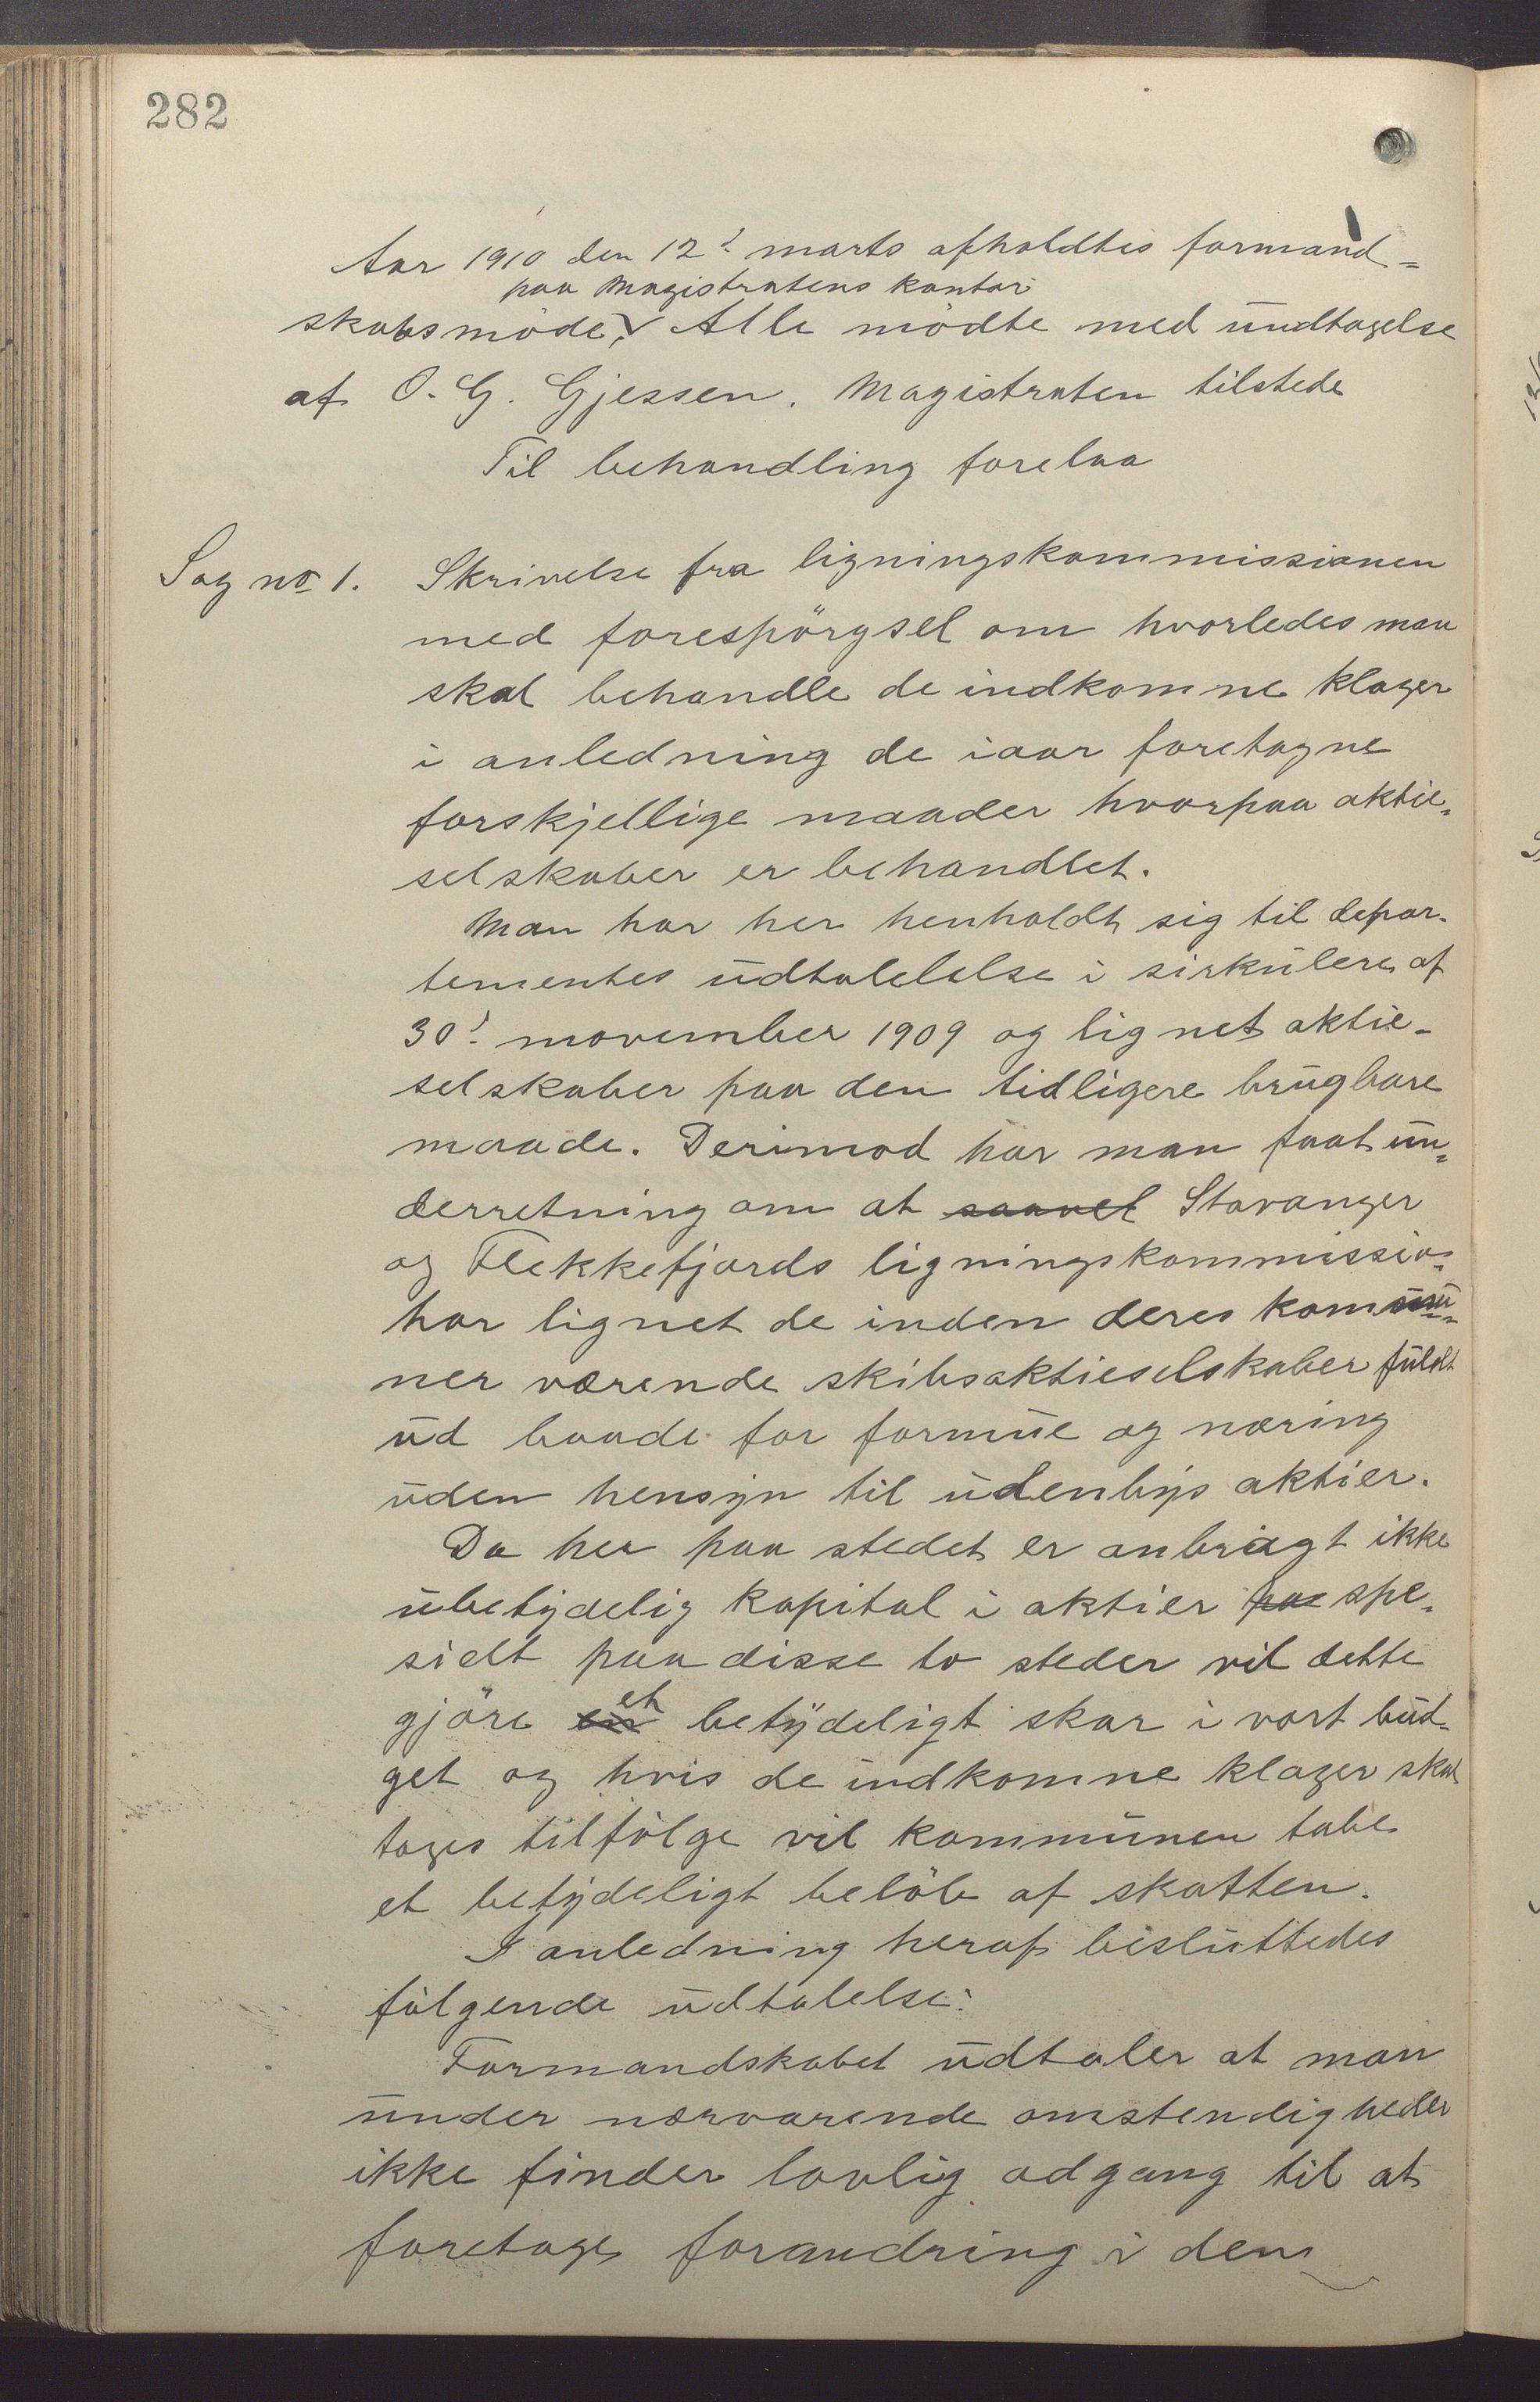 282
Aar 1910 den 12' marts afholdtes formand=
paa Magistratens kontor
skabsmöde. Alle mödte med undtagelse
af O. G. Gjessen. Magistraten tilstede
Til behandling forelaa
Sag no 1. Skrivelse fra ligningskommissionen
med forespörgsel om hvorledes man
skal behandle de indkomne klager
i anledning de iaar foretagne
forskjellige maader hvorpaa aktie-
selskaber er behandlet.
Man har her henholdt sig til depar-
tementes udtalelelse i sirkulere af
30' november 1909 og lignet aktie-
selskaber paa den tidligere brugbare
maade. Derimod har man faat un-
derretning om at saavel Stavanger
og Flekkefjords ligningskommissio-
har lignet de inden deres kommu-
ner værende skibsaktieselskaber fuldt
ud baade for formue og næring
uden hensyn til udenbys aktier.
Da her paa stedet er anbragt ikke
ubetydelig kapital i aktier paa spe-
sielt paa disse to steder vil dette
gjöre en et betydeligt skar i vort bud-
get og hvis de indkomne klager skal
tages tilfölge vil kommunen tabe
et betydeligt belöb af skatten.
I anledning heraf besluttedes
fölgende udtalelse:
Formandskabet udtaler at man
under nærværende omstendigheder
ikke finder lovlig adgang til at
foretage forandring i den